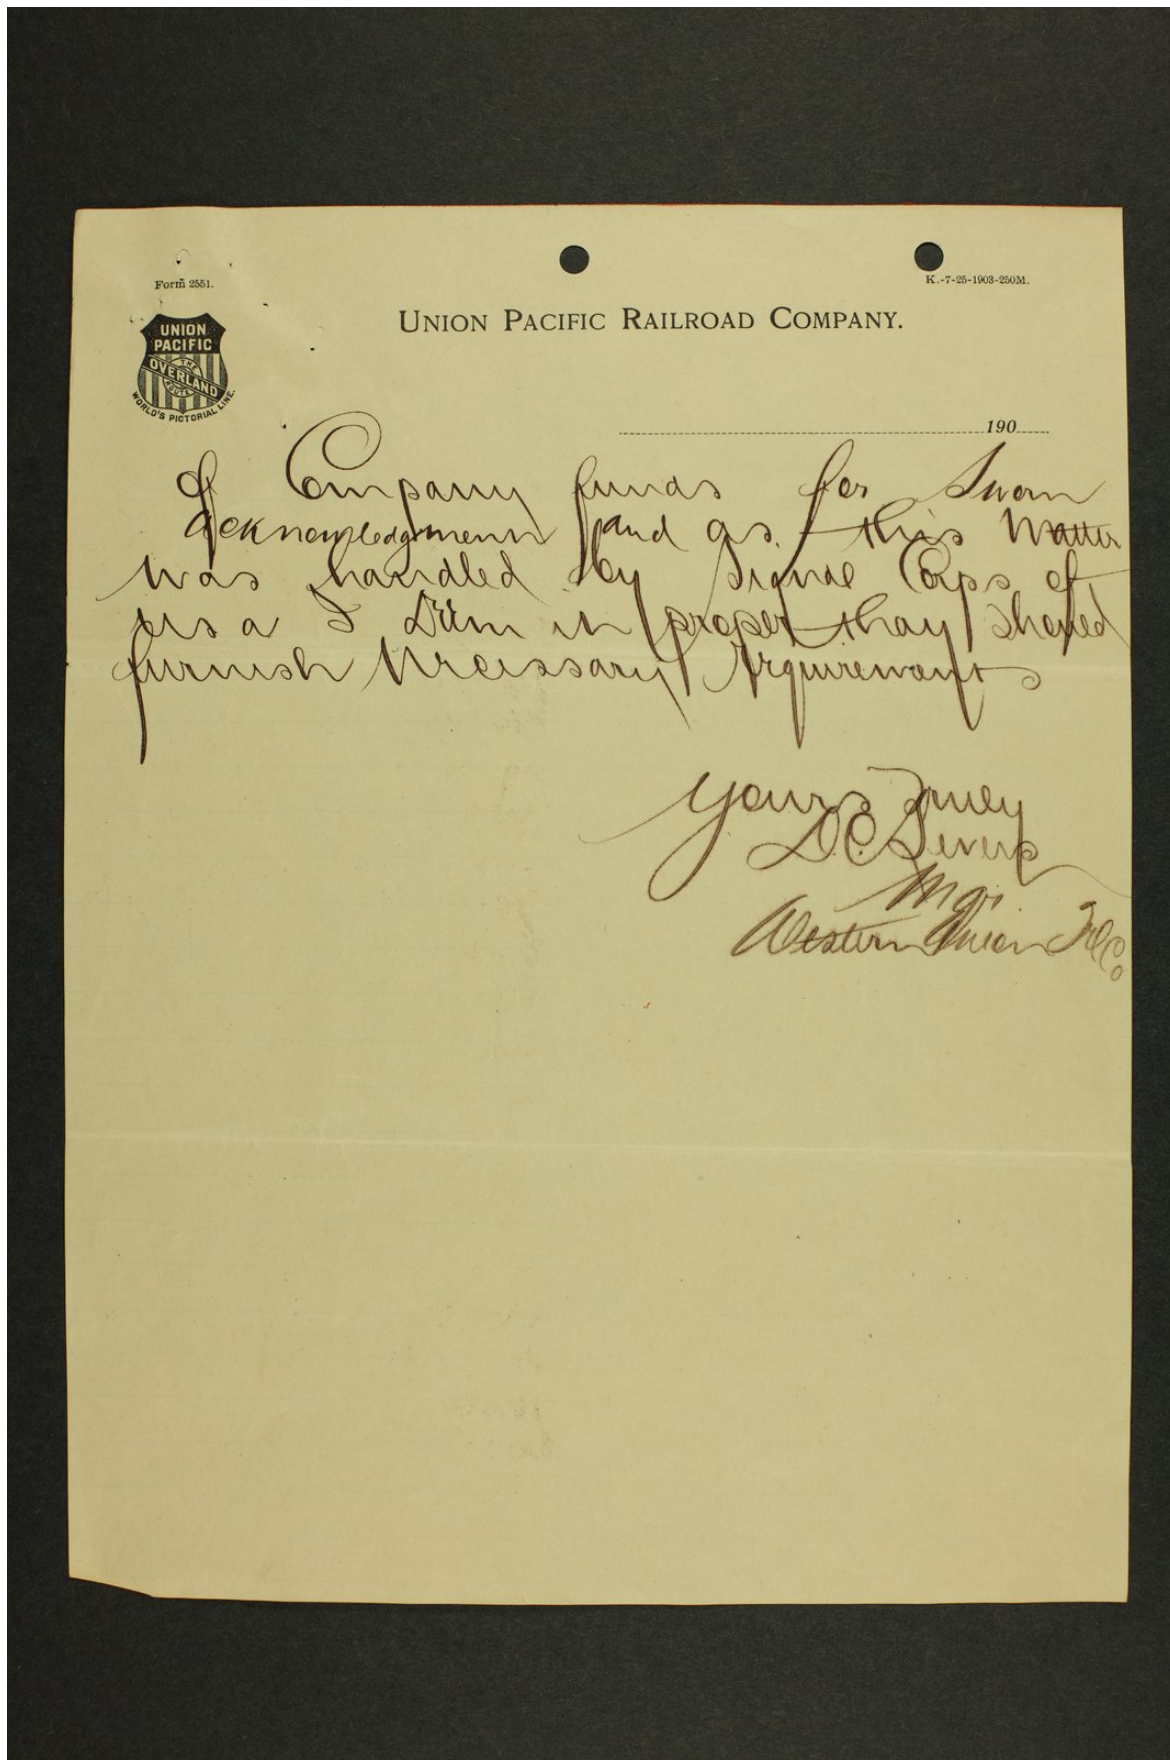 Form 2551.
K.-7-25-1903-250M.
UNION PACIFIC RAILROAD COMPANY.
UNION
PACIFIC
THE
OVERLAND
ROUTE
WORLD'S PICTORIAL LINE.
190
of Company funds for Sworn
acknowledgment and as this matter
was handled by Signal Corps of
USA I Deem it proper they should
furnish necessary requirements
yours Truly
D.C.
Mgr
Western Union Tel Co